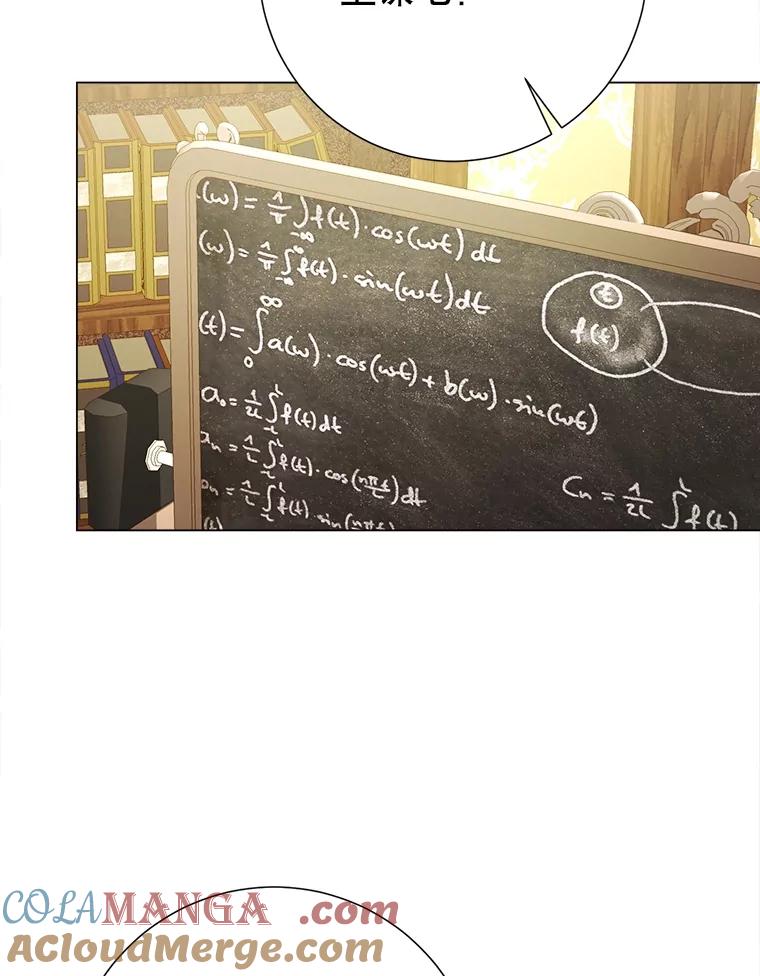 (ω) = 1/π ∫ f(t) · cos(ωt) dt
-∞
(ω) = 1/π ∫ f(t) · sin(ωt) dt
-∞
(t) = ∫ a(ω) · cos(ωt) + b(ω) · sin(ωt)
∞
0
t
f(t)
a₀ = 1/2L ∫ f(t) dt
aₙ = 1/L ∫ f(t) · cos(nπt/L) dt
bₙ = 1/L ∫ f(t) · sin(nπt
Cₙ = 1/2L ∫ f(t)
COLAMANGA.com
AcloudMerge.com